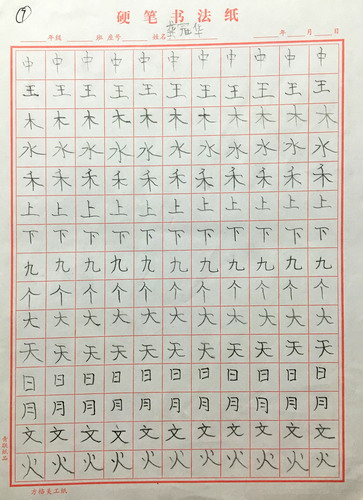 硬笔书法纸
年级 班 座号 姓名 年 月 日
中 中 中 中 中 中 中 中 中 中 中
王 王 王 王 王 王 王 王 王 王 王
木 木 木 木 木 木 木 木 木 木 木
水 水 水 水 水 水 水 水 水 水 水
禾 禾 禾 禾 禾 禾 禾 禾 禾 禾 禾
上 上 上 上 上 上 上 上 上 上 上
下 下 下 下 下 下 下 下 下 下 下
九 九 九 九 九 九 九 九 九 九 九
个 个 个 个 个 个 个 个 个 个 个
大 大 大 大 大 大 大 大 大 大 大
天 天 天 天 天 天 天 天 天 天 天
日 日 日 日 日 日 日 日 日 日 日
月 月 月 月 月 月 月 月 月 月 月
文 文 文 文 文 文 文 文 文 文 文
火 火 火 火 火 火 火 火 火 火 火